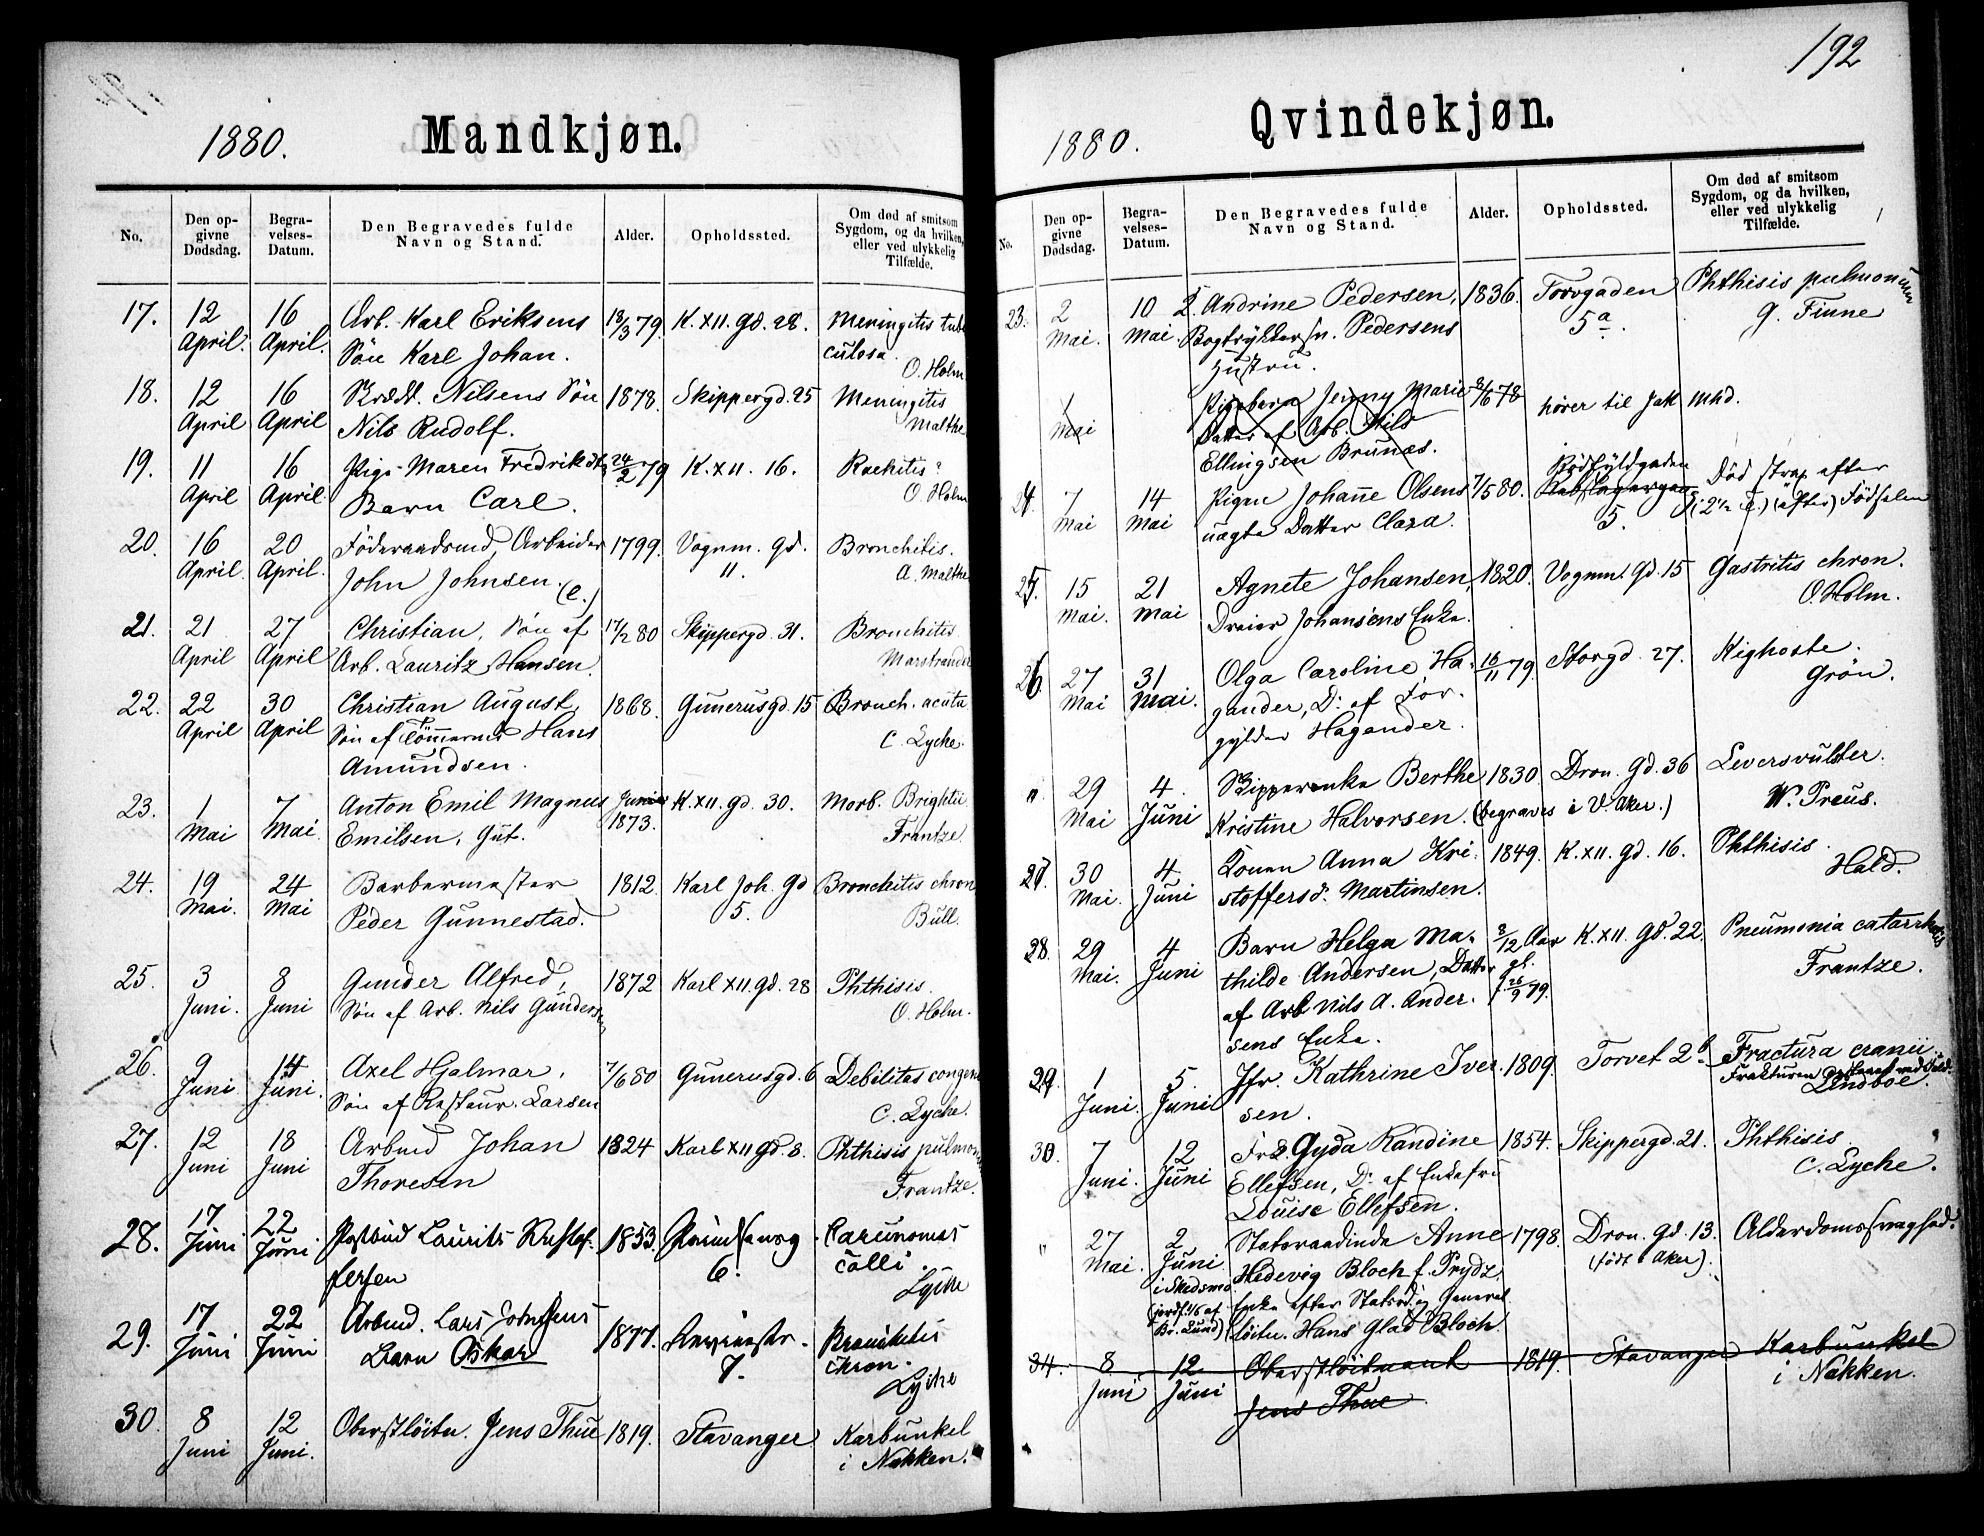 192
1880. Mandkjøn.
No. Den opgivne Dødsdag. Begravelses-Datum. Den Begravedes fulde Navn og Stand. Alder. Opholdssted. Om død af smitsom Sygdom, og da hvilken, eller ved ulykkelig Tilfælde.
17. 12 16 Arb. Karl Eriksens 18/3 79. K. XII. gd. 28. Meningitis tuber
April. April. Søn Karl Johan. culosa.
O. Holm
18. 12 16 Nilsens Søn 1878. Skippergd. 25 Meningitis
April April Nils Rudolf. Malthe
19. 11 16 Pige Maren Fredriksd. 24/2 79 K. XII. 16. Rachitis
April April. Barn Carl. O. Holm
20. 16 20 Arbeider 1799. Vognm. gd. Bronchitis.
April. April. John Johnsen. (e.) 11. A. Malthe
21. 21 27 Christian, Søn af 17/2 80 Skippergd. 31. Bronchitis
April April Arb. Lauritz Hansen. Marstrander
22. 22 30 Christian August, 1868. Gunerusgd. 15 Bronch. acuta
April April Søn af Tömmermd Hans C. Lyche.
Amundsen.
23. 1 7 Anton Emil Magnus Juni K. XII. gd. 30. Morb. Brightii
Mai Mai. Emilsen, Gut. 1873. Frantze
24. 19 24 Barbermester 1812. Karl Joh. gd Bronchitis chron
Mai. Mai Peder Gunnestad. 5. Bull.
25. 3 8 Gunder Alfred, 1872 Karl XII. gd. 28 Phthisis.
Juni. Juni Søn af Arb. Nils Gundersen O. Holm.
26. 9 14 Axel Hjalmar, 7/6 80 Gunerusgd. 6 Debilitas congen
Juni Juni. Søn af Restaur. Larsen C. Lyche.
27. 12 18 Arbmd Johan 1824 Karl XII gd. 8. Phthisis pulmon
Juni Juni Thoresen Frantze.
28. 17 22 Postbud Laurits Kristof- 1853. 6. Carcinomas
Juni Juni fersen colli.
Lyche
29. 17 22 Arbmd. Lars Johnsens 1877. 7. Bronchitis
Juni Juni Barn Oskar chron.
Lyche
30. 8 12 Oberstlöitn. Jens Thue 1819. Stavanger Karbunkel
Juni Juni. i Nakken.
1880. Qvindekjøn.
No. Den opgivne Dødsdag. Begravelses-Datum. Den Begravedes fulde Navn og Stand. Alder. Opholdssted. Om død af smitsom Sygdom, og da hvilken, eller ved ulykkelig Tilfælde.
23. 2 10 Andrine Pedersen, 1836. Torvgaden Phthisis pulmonum
Mai. Mai. Bogtrykkersv. Pedersens 5a. G. Finne
Hustru.
1 Pigebarn Jenny Marie 2/6 78 hører til Jak mhd.
Mai Datter af Arb. Nils
Ellingsen Brunæs.
24. 7 14 Pigen Johanne Olsens 7/5 80. Rødfyldgaden Død strax efter
Mai Mai uægte Datter Clara. Rebslagergang 5. (2 1/2 T.) (efter) Födselen
25. 15 21 Agnete Johansen, 1820. Vognm. gd. 15 Gastritis chron.
Mai. Mai Dreier Johansens Enke. O. Holm.
26. 27 31 Olga Caroline Ha- 16/11 79. Storgd. 27. Kighoste.
Mai Mai. gander, D: af For- Grön.
gylder Hagander.
" 29 4. Skipperenke Berthe 1830 Dron. gd. 36 Leversvulster.
Mai Juni Kristine Halvorsen. (begraves i V. Aker.) W. Preus.
27. 30 4 Konen Anna Kri- 1849. K. XII. gd. 16. Phthisis.
Mai. Juni stoffersd. Martinsen. Hald.
28. 29 4 Barn Helga Ma- 8/12 Aar K. XII. gd. 22. Pneumonia catarrhalis
Mai. Juni thilde Andersen, Datter gl. Frantze.
af Arb Nils A. Ander- f. 26/9 79.
sens Enke.
29. 1 5. Jfr. Kathrine Iver- 1809. Torvet 2b Fractura cranii.
Juni. Juni sen. Frakturen ved Fald.
Lindboe.
30. 7 12 Frk. Gyda Randine 1854. Skippergd. 21. Phthisis.
Juni. Juni Ellefsen, D: af Enkefru C. Lyche.
Louise Ellefsen.
" 27 2 Statsraadinde Anne 1798. Dron. gd. 13. Alderdomssvaghed.
Mai. Juni Hedevig Bloch f. Prydz. (født Aker).
i Skedsmo Enke efter Statsrd. og General
(jordf. 1/6 af löitn. Hans Glad Bloch.
Br. Lund)
31. 8 12 Oberstlöitnant 1819. Stavanger Karbunkel
Juni Juni Jens Thue i Nakken.